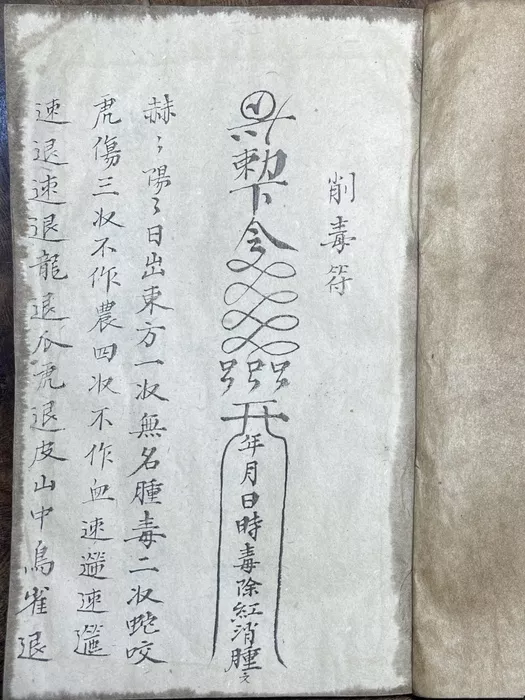 削毒符
敕下令
年月日時毒除紅消腫
赫〻陽〻日出東方一收無名腫毒二收蛇咬
虎傷三收不作農四收不作血速速
速退速退龍退爪虎退皮山中鳥雀退